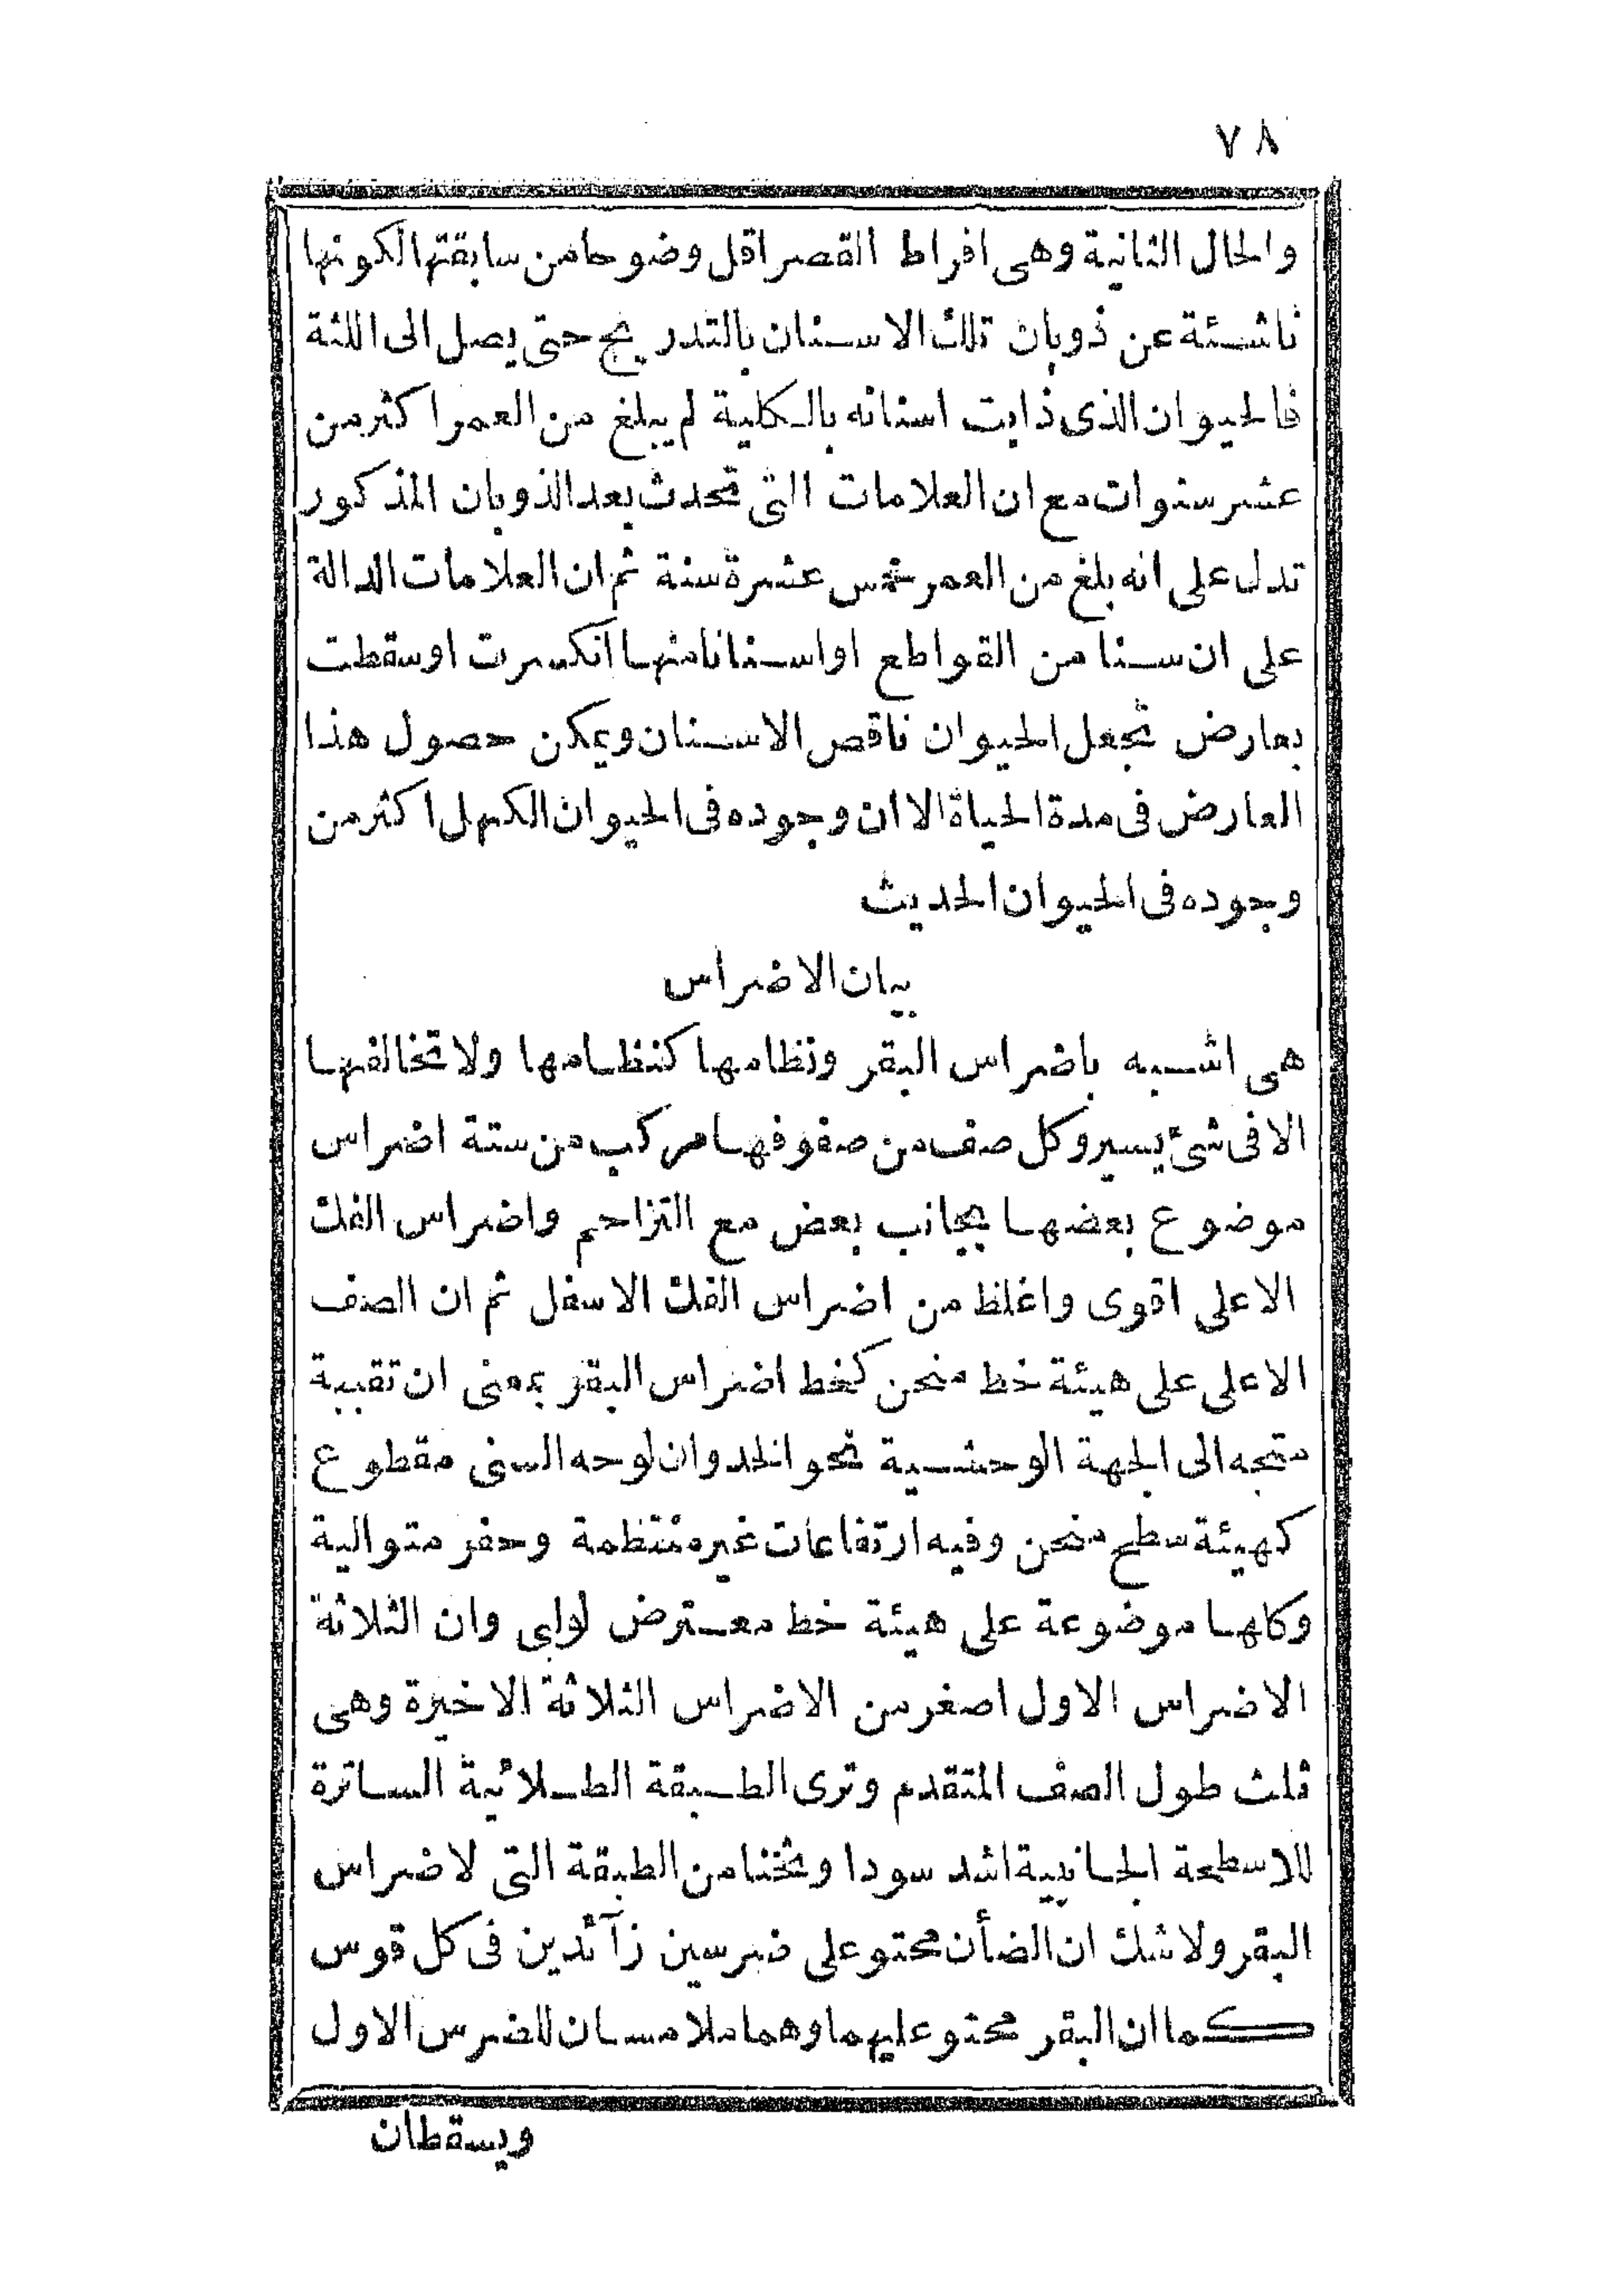 ٧٨
والحال الثانية وهى افراط القصر اقل وضوحا من سابقتها لكونها
ناشئة عن ذوبان تلك الاسنان بالتدريج حتى يصل الى اللثة
فالحيوان الذى ذابت اسنانه بالكلية لم يبلغ من العمر اكثر من
عشر سنوات مع ان العلامات التى تحدث بعد الذوبان المذكور
تدل على انه بلغ من العمر خمس عشرة سنة ثم ان العلامات الدالة
على ان سنا من القواطع او اسنانا منها انكسرت او سقطت
بعارض تجعل الحيوان ناقص الاسنان ويمكن حصول هذا
العارض فى مدة الحياة الا ان وجوده فى الحيوان الكهل اكثر من
وجوده فى الحيوان الحديث
بيان الاضراس
هى اشبه باضراس البقر ونظامها كنظامها ولا تخالفها
الا فى شئ يسير وكل صف من صفوفها مركب من ستة اضراس
موضوع بعضها بجانب بعض مع التزاحم واضراس الفك
الاعلى اقوى واغلظ من اضراس الفك الاسفل ثم ان الصف
الاعلى على هيئة خط منحن كخط اضراس البقر بمعنى ان تقببه
متجه الى الجهة الوحشية نحو الخد وان لوحه السنى مقطوع
كهيئة سطح منحن وفيه ارتفاعات غير منتظمة وحفر متوالية
وكلها موضوعة على هيئة خط معترض لولبى وان الثلاثة
الاضراس الاول اصغر من الاضراس الثلاثة الاخيرة وهى
ثلث طول الصف المتقدم وترى الطبقة الطلائية الساترة
للاسطحة الجانبية اشد سودا وثخنا من الطبقة التى لاضراس
البقر ولا شك ان الضأن محتو على ضرسين زآئدين فى كل قوس
كما ان البقر محتو عليهما وهما ملامسان للضرس الاول
ويسقطان